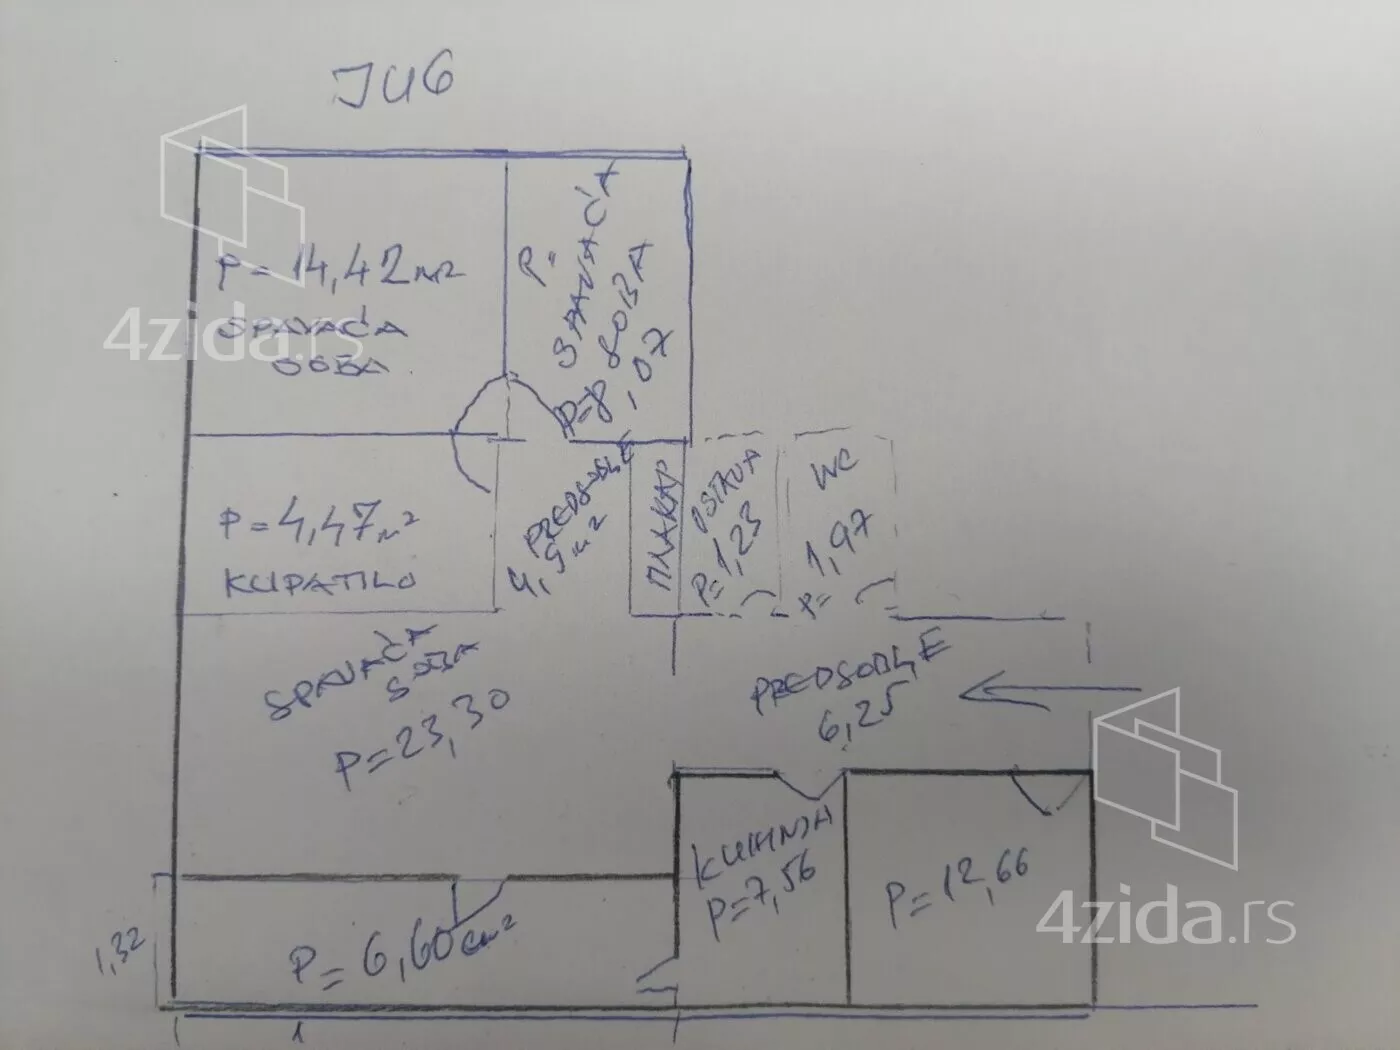 JUG
P=14,42m2
SPAVAĆA
SOBA
P=
SPAVAĆA
SOBA
P=8,07
P=4,47m2
KUPATILO
PREDSOBLJE
4,9m2
ПЛАКАР
OSTAVA
P=1,23
WC
P=1,97
SPAVAĆA
SOBA
P=23,30
PREDSOBLJE
6,25
KUHINJA
P=7,56
P=12,66
P=6,60cm2
1,32
1
4zida.rs
4zida.rs